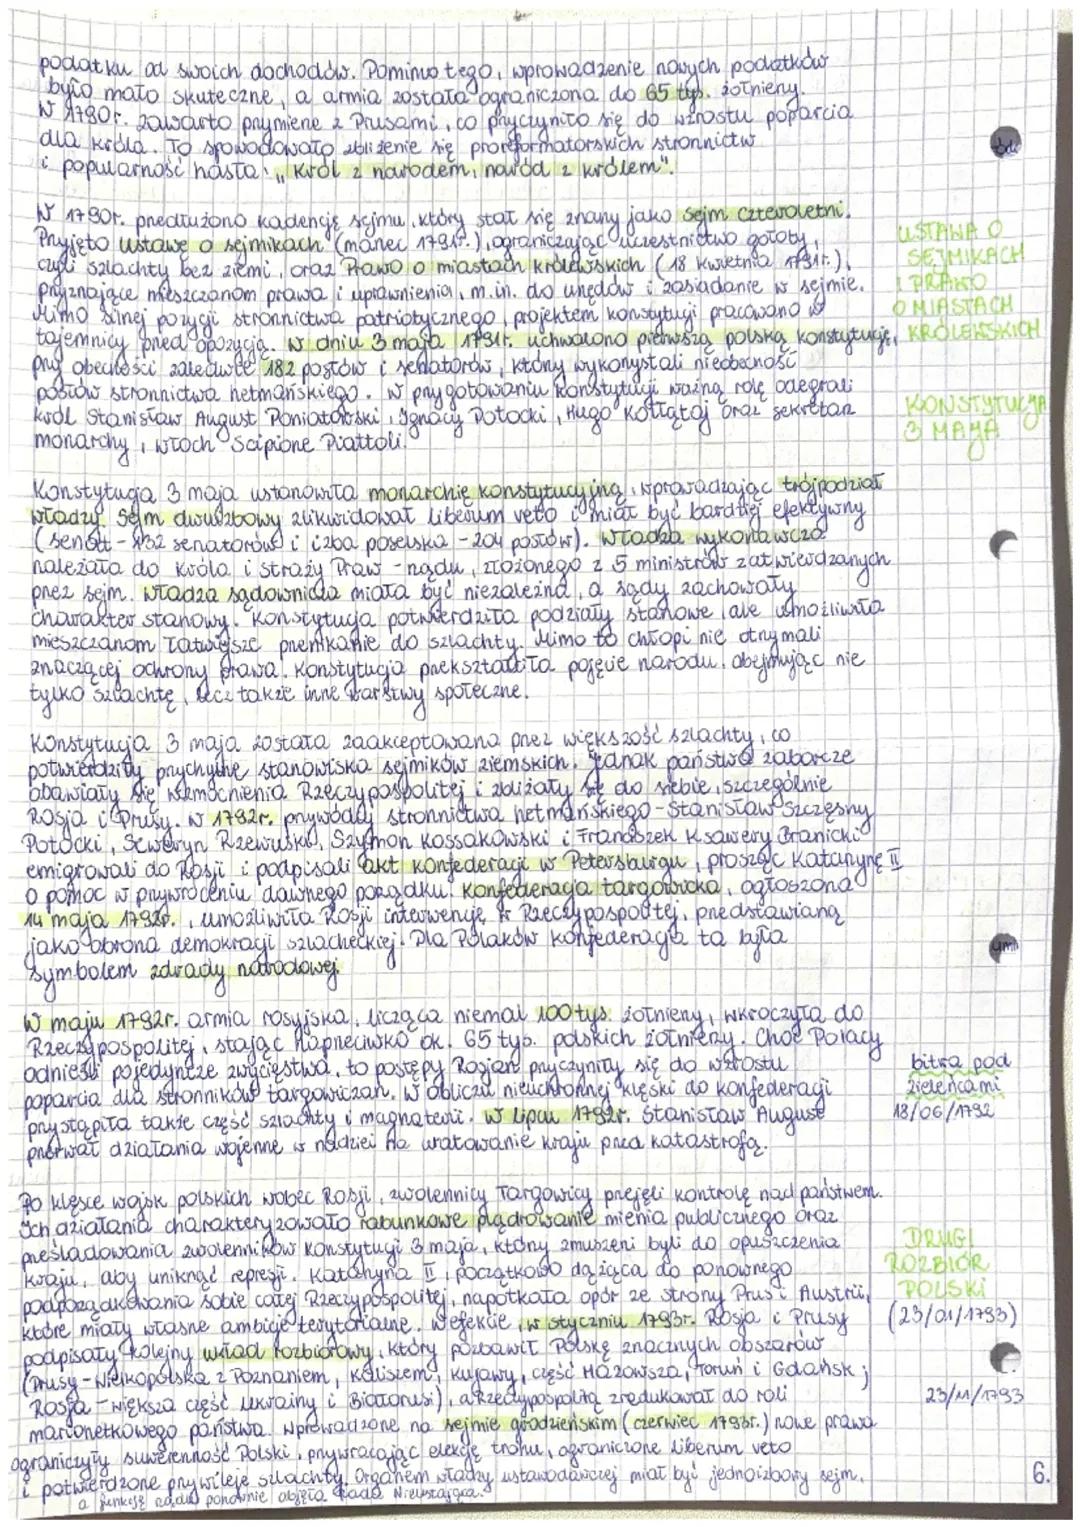 podatku od swoich dochodów. Pomimo tego, wprowadzenie nowych podatków
było mało skuteczne, a armia została ograniczona do 65 tys. żołnierzy.
W 1790r. zawarto przymierze z Prusami, co przyczyniło się do wzrostu poparcia
dla króla. To spowodowało zbliżenie się proreformatorskich stronnictw
i popularność hasła: „Król z narodem, naród z królem".
W 1790r. przedłużono kadencję sejmu, który stał się znany jako Sejm Czteroletni.
Przyjęto ustawę o sejmikach (marzec 1791r.), ograniczając uczestnictwo gołoty,
czyli szlachty bez ziemi, oraz Prawo o miastach królewskich (18 kwietnia 1791r.),
przyznające mieszczanom prawa i uprawnienia, m.in. do urzędów i zasiadanie w sejmie.
Mimo silnej pozycji stronnictwa patriotycznego, projektem konstytucji pracowano w
tajemnicy przed opozycją. W dniu 3 maja 1791r. uchwalono pierwszą polską konstytucję,
przy obecności zaledwie 182 posłów i senatorów, którzy wykorzystali nieobecność
posłów stronnictwa hetmańskiego. W przygotowaniu konstytucji ważną rolę odegrali
król Stanisław August Poniatowski, Ignacy Potocki, Hugo Kołłątaj oraz sekretarz
monarchy, włoch Scipione Piattoli.
USTAWA O
SEJMIKACH
I PRAWO
O MIASTACH
KRÓLEWSKICH
KONSTYTUCJA
3 MAJA
Konstytucja 3 maja ustanowiła monarchię konstytucyjną, wprowadzając trójpodział
władzy. Sejm dwuizbowy zlikwidował liberum veto i miał być bardziej efektywny
(senat - 132 senatorów i izba poselska - 204 posłów). Władza wykonawcza
należała do króla i Straży Praw - rządu, złożonego z 5 ministrów zatwierdzanych
przez sejm. Władza sądownicza miała być niezależna, a sądy zachowały
charakter stanowy. Konstytucja potwierdziła podziały stanowe, ale umożliwiła
mieszczanom łatwiejsze przenikanie do szlachty. Mimo to chłopi nie otrzymali
znaczącej ochrony prawa. Konstytucja przekształciła pojęcie narodu, obejmując nie
tylko szlachtę, lecz także inne warstwy społeczne.
Konstytucja 3 maja została zaakceptowana przez większość szlachty, co
potwierdziły przychylne stanowiska sejmików ziemskich. Jednak państwa zaborcze
obawiały się wzmocnienia Rzeczypospolitej i zbliżały się do siebie, szczególnie
Rosja i Prusy. W 1792r. przywódcy stronnictwa hetmańskiego - Stanisław Szczęsny
Potocki, Seweryn Rzewuski, Szymon Kossakowski i Franciszek Ksawery Branicki
emigrowali do Rosji i podpisali akt konfederacji w Petersburgu, prosząc Katarzynę II
o pomoc w przywróceniu dawnego porządku. Konfederacja targowicka, ogłoszona
14 maja 1792r., umożliwiła Rosji interwencję w Rzeczypospolitej, przedstawianą
jako obrona demokracji szlacheckiej. Dla Polaków konfederacja ta była
symbolem zdrady narodowej.
W maju 1792r. armia rosyjska, licząca niemal 100 tys. żołnierzy, wkroczyła do
Rzeczypospolitej, stając naprzeciwko ok. 65 tys. polskich żołnierzy. Choć Polacy
odnieśli pojedyncze zwycięstwa, to postępy Rosjan przyczyniły się do wzrostu
poparcia dla stronników targowiczan. W obliczu nieuchronnej klęski do konfederacji
przystąpiła także część szlachty i magnaterii. W lipcu 1792r. Stanisław August
przerwał działania wojenne w nadziei na uratowanie kraju przed katastrofą.
bitwa pod
Zieleńcami
18/06/1792
Po klęsce wojsk polskich wobec Rosji, zwolennicy Targowicy przejęli kontrolę nad państwem.
Ich działania charakteryzowało rabunkowe plądrowanie mienia publicznego oraz
prześladowania zwolenników Konstytucji 3 maja, którzy zmuszeni byli do opuszczenia
kraju, aby uniknąć represji. Katarzyna II, początkowo dążąca do ponownego
podporządkowania sobie całej Rzeczypospolitej, napotkała opór ze strony Prus i Austrii,
które miały własne ambicje terytorialne. W efekcie, w styczniu 1793r. Rosja i Prusy
podpisały kolejny układ rozbiorowy, który pozbawił Polskę znacznych obszarów
(Prusy - Wielkopolska z Poznaniem, Kaliszem, Kujawy, część Mazowsza, Toruń i Gdańsk;
Rosja - większa część Ukrainy i Białorusi), a Rzeczypospolitą zredukował do roli
marionetkowego państwa. Wprowadzone na sejmie grodzieńskim (czerwiec 1793r.) nowe prawa
ograniczyły suwerenność Polski, przywracając elekcję tronu, ograniczone liberum veto
i potwierdzone przywileje szlachty. Organem władzy ustawodawczej miał być jednoizbowy sejm,
a funkcję rządu ponownie objęła Rada Nieustająca.
DRUGI
ROZBIÓR
POLSKI
(23/01/1793)
23/11/1793
6.